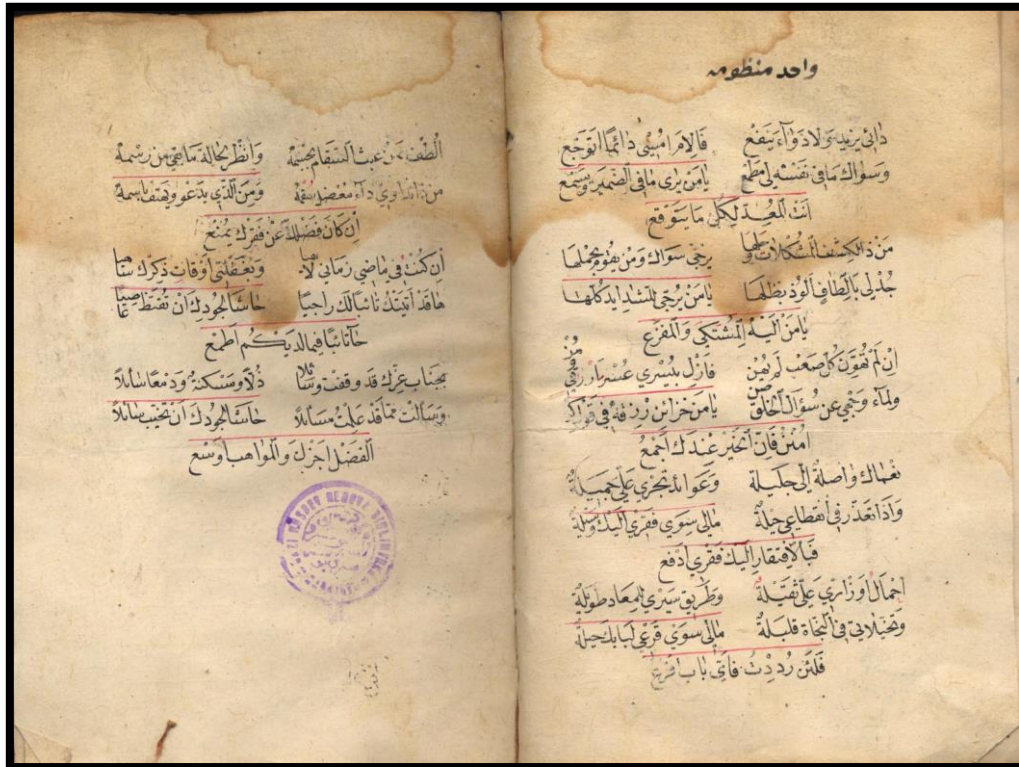 واحد منظومه
دائي يزيد ولا دواء ينفع فالام امسي دائما اتوجع
وسواك ما في نفسه لي مطمع يا من يرى ما في الضمير ويسمع
انت المعد لكل ما يتوقع
من ذا لكشف المشكلات وحلها يرجى سواك ومن يقوم بحملها
جد لي بالطاف الوذ بظلها يا من يرجى للشدايد كلها
يا من اليه المشتكى والمفزع
ان لم تهون كل صعب لم يهن فازل بيسري عسر
ولماء وجهي عن سؤال الخلق صن يا من خزائن رزقه في قول كن
امنن فان الخير عندك اجمع
نعماك واصلة الي جليلة وعوائد تجري علي جميلة
واذا تعذر في انقطاعي حيلة مالي سوى فقري اليك وسيلة
فبالافتقار اليك فقري ادفع
احمال اوزاري علي ثقيلة وطريق سيري للمعاد طويلة
وتخيلاتي في النجاة قليلة مالي سوى قرعي لبابك حيلة
فلئن رددت فاي باب اقرع
الطف بمن عبث السقام بجسمه وانظر لحالة ما بقي من رسمه
من ذا يداوي داء معضل سقمه ومن الذي يدعو ويهتف باسمه
ان كان فضلك عن فقيرك يمنع
ان كنت في ماضي زماني لاهيا وبغفلتي اوقات ذكرك ساهيا
ها قد اتيتك تائبا لك راجيا حاشا لجودك ان تقنط عاصيا
تائبا فيما لديكم اطمع
بجناب عزك قد وقفت وسائلا ذلا ومسكنة ودمعا سائلا
وسالت عما قد علمت مسائلا حاشا لجودك ان تخيب سائلا
الفضل اجزل والمواهب اوسع